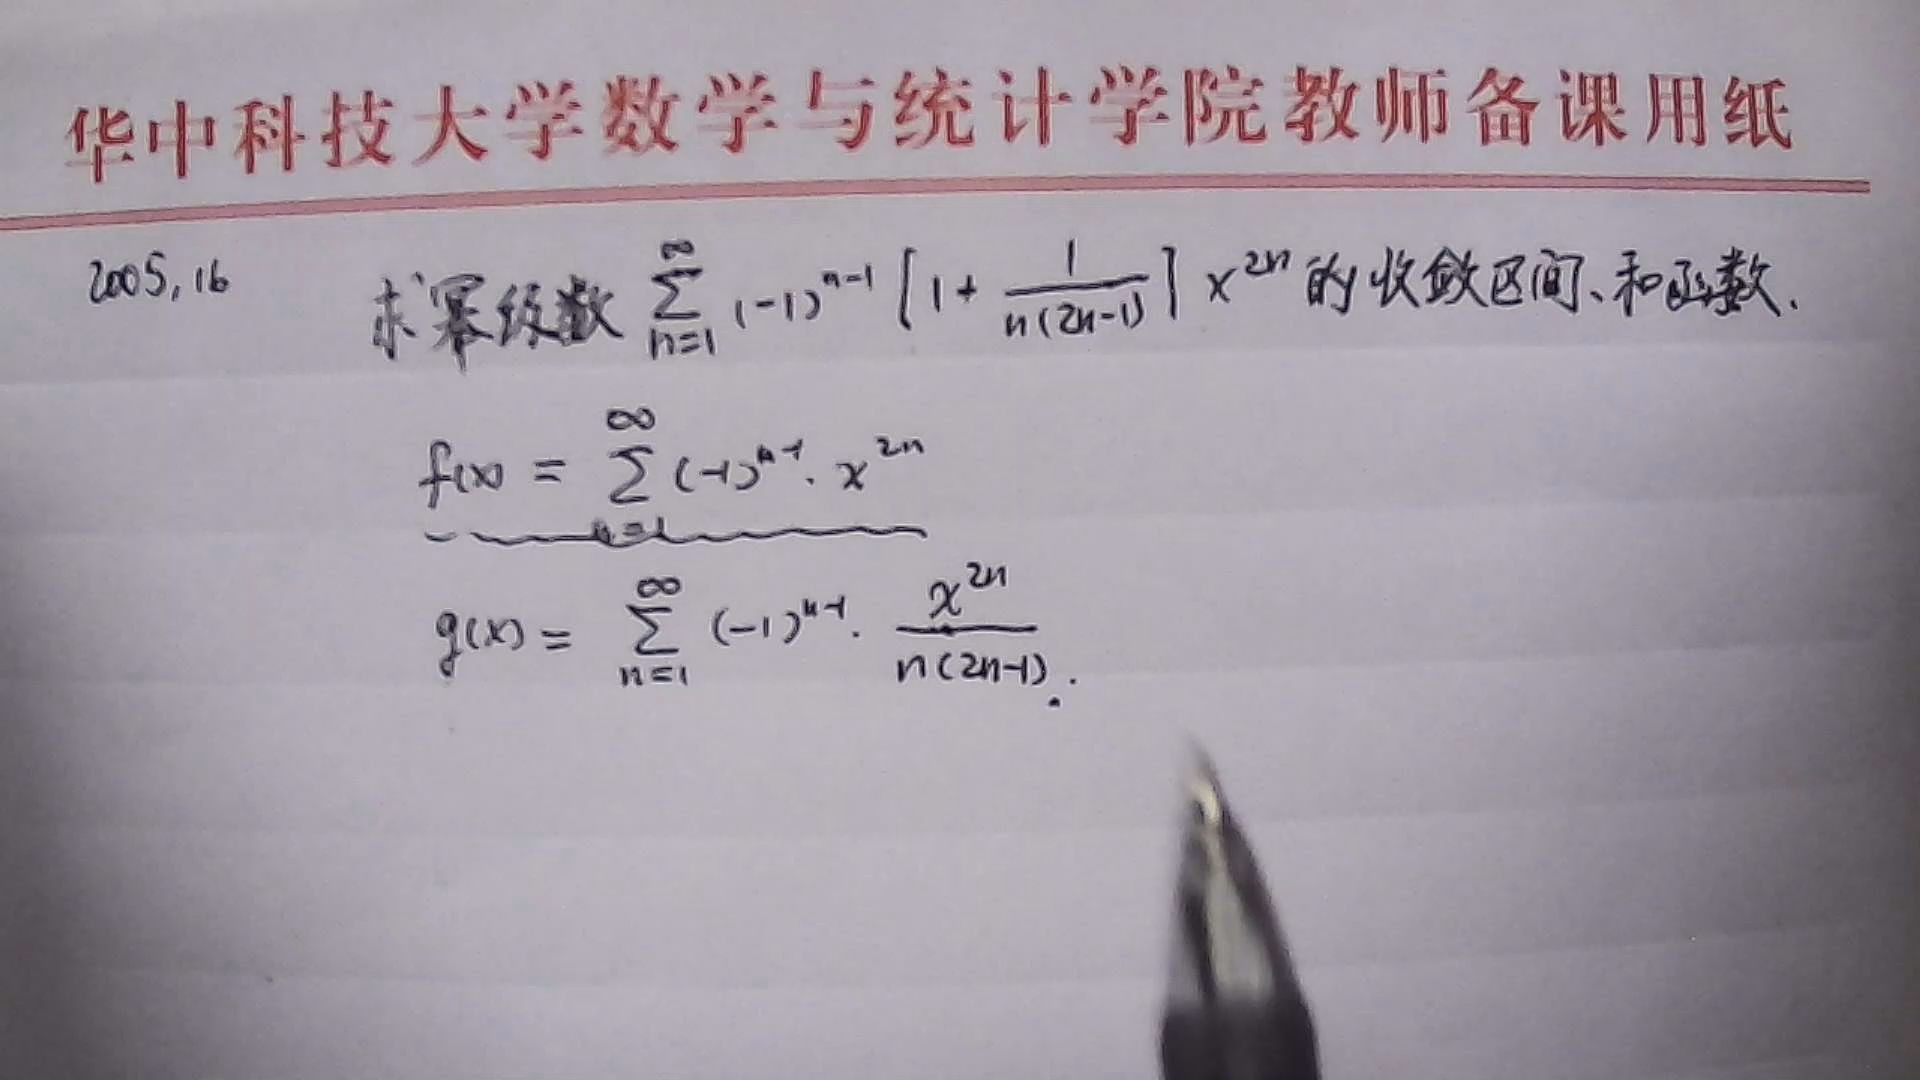 华中科技大学数学与统计学院教师备课用纸
2005,16 求幂级数 ∑_{n=1}^{∞} (-1)^{n-1} [1+ 1/(n(2n-1))] x^{2n} 的收敛区间、和函数.
f(x) = ∑_{n=1}^{∞} (-1)^{n-1} · x^{2n}
g(x) = ∑_{n=1}^{∞} (-1)^{n-1} · x^{2n}/(n(2n-1)).